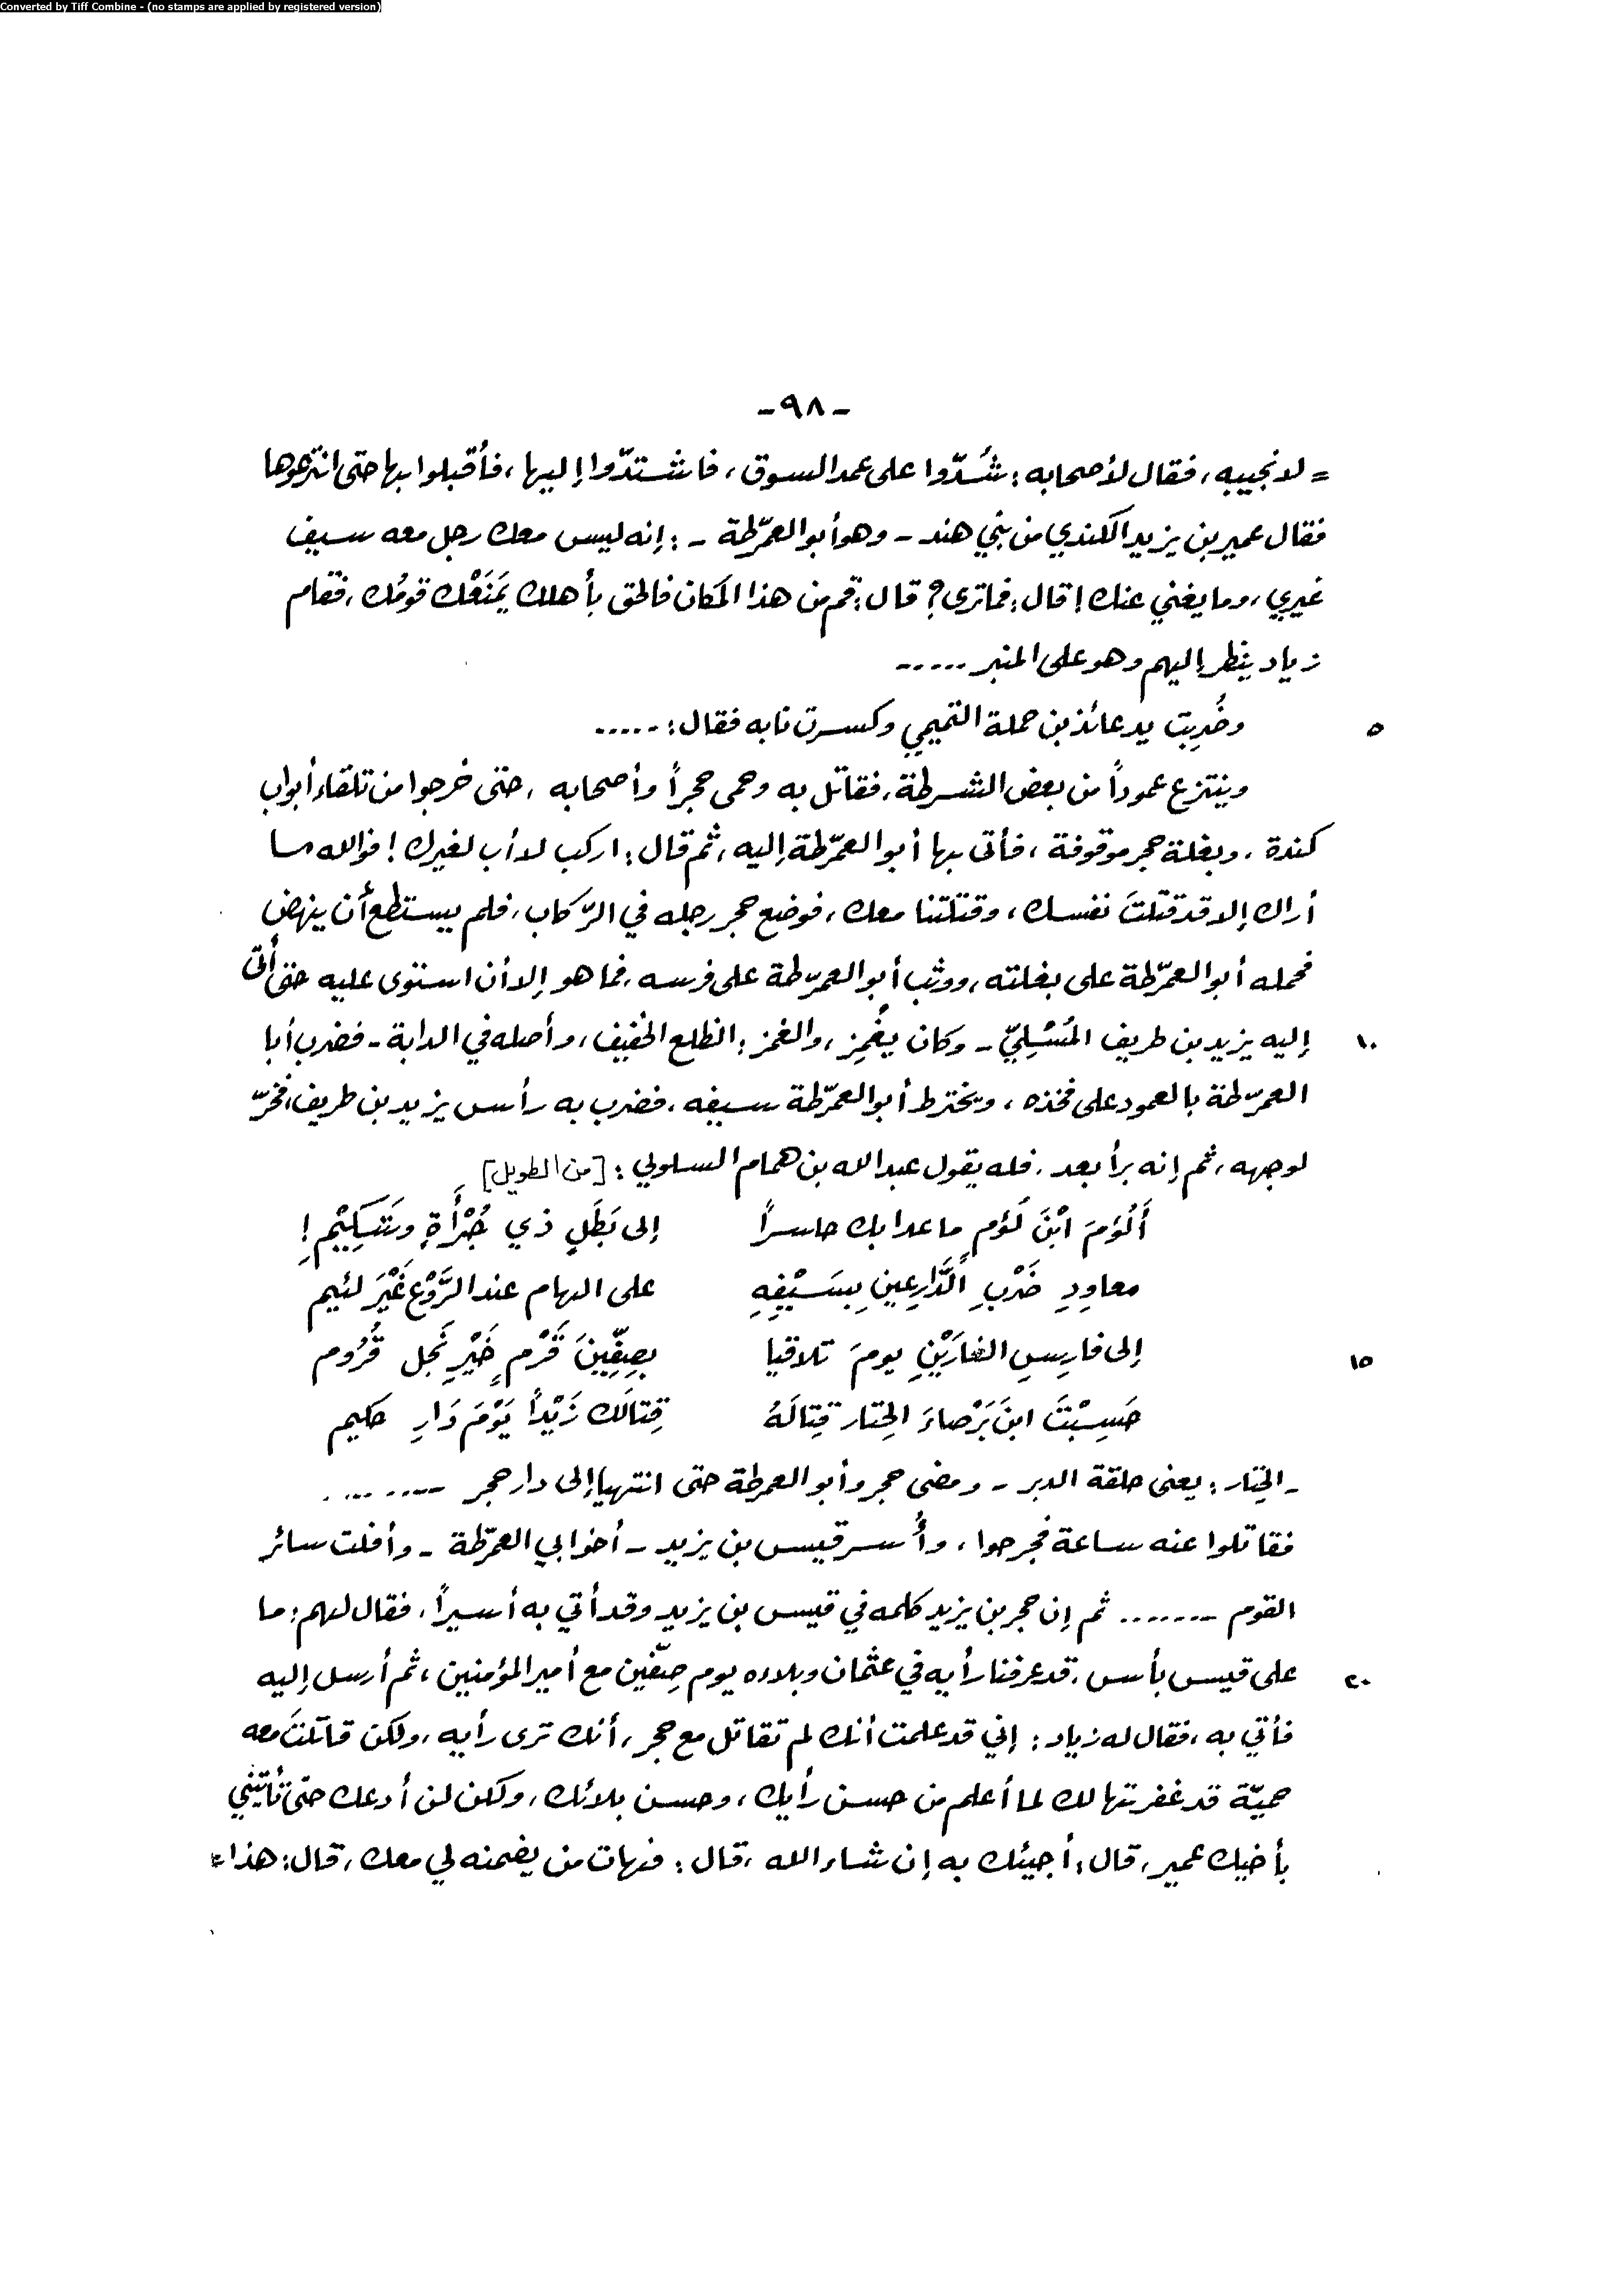 Converted by Tiff Combine - (no stamps are applied by registered version)
-٩٨-
= لا نجيبه، فقال لأصحابه: شُدّوا على عمد السوق، فاشتدّوا إليها، فأقبلوا بها حتى انتزعوها
فقال عمير بن يزيد الكندي من بني هند - وهو أبو العمرّطة -: إنه ليس معك رجل معه سيف
غيري، وما يغني عنك! قال: فما ترى؟ قال: قم من هذا المكان فالحق بأهلك يَمنَعْك قومُك، فقام
زياد ينظر إليهم وهو على المنبر .....
٥ وضُرِبت يد عائذ بن حملة التميمي وكسرت نابه فقال: .....
وينتزع عموداً من بعض الشرطة، فقاتل به وحمى حجراً وأصحابه، حتى خرجوا من تلقاء أبواب
كندة، وبغلة حجر موقوفة، فأتى بها أبو العمرّطة إليه، ثم قال: اركب لا أب لغيرك! فوالله ما
أراك إلا قد قتلتَ نفسك، وقتلتنا معك، فوضع حجر رجله في الرّكاب، فلم يستطع أن ينهض
فحمله أبو العمرّطة على بغلته، ووثب أبو العمرّطة على فرسه، فما هو إلا أن استوى عليه حتى أتى
١٠ إليه يزيد بن طريف المُسْلِيّ - وكان يغمِز، والغمز: الظلع الخفيف، وأصله في الدابة - فضرب أبا
العمرّطة بالعمود على فخذه، ويخترط أبو العمرّطة سيفه، فضرب به رأس يزيد بن طريف، فخرّ
لوجهه، ثم إنه برأ بعد. فله يقول عبدالله بن همام السلولي: [من الطويل]
أَلُؤمَ ابْنَ لُؤمٍ ما عدا بك حاسراً إلى بَطَلٍ ذي جُرْأَةٍ وشَكِيْمِ!
معاوِدِ ضَرْبِ الدَّارِعينِ بِسَيْفِهِ على الهام عند الرَّوْعِ غَيْرَ لئيم
١٥ إلى فارِسِ الغارَيْنِ يومَ تلاقيا بِصِفِّينَ قَرْمٍ خَيْرِ نَجل قُرُوم
حَسِبْتَ ابنَ بَرْصاءَ الحِتار قِتالَهُ قِتالَك زَيْداً يَوْمَ دَارِ حكيم
- الحتار: يعني حلقة الدبر - ومضى حجر وأبو العمرطة حتى انتهيا إلى دار حجر ........
فقاتلوا عنه ساعة فجرحوا، وأُسر قيس بن يزيد - أخو أبي العمرّطة - وأفلت سائر
القوم ....... ثم إن حجر بن يزيد كلمه في قيس بن يزيد وقد أتي به أسيراً، فقال لهم: ما
٢٠ على قيس بأس، قد عرفنا رأيه في عثمان وبلاءه يوم صِفّين مع أمير المؤمنين، ثم أرسل إليه
فأتي به، فقال له زياد: إني قد علمت أنك لم تقاتل مع حجر، أنك ترى رأيه، ولكن قاتلتَ معه
حميّة قد غفرتها لك لما أعلم من حسن رأيك، وحسن بلائك، ولكن لن أدعك حتى تأتيني
بأخيك عمير، قال: أجيئك به إن شاء الله، قال: فهات من يضمنه لي معك، قال: هذا =